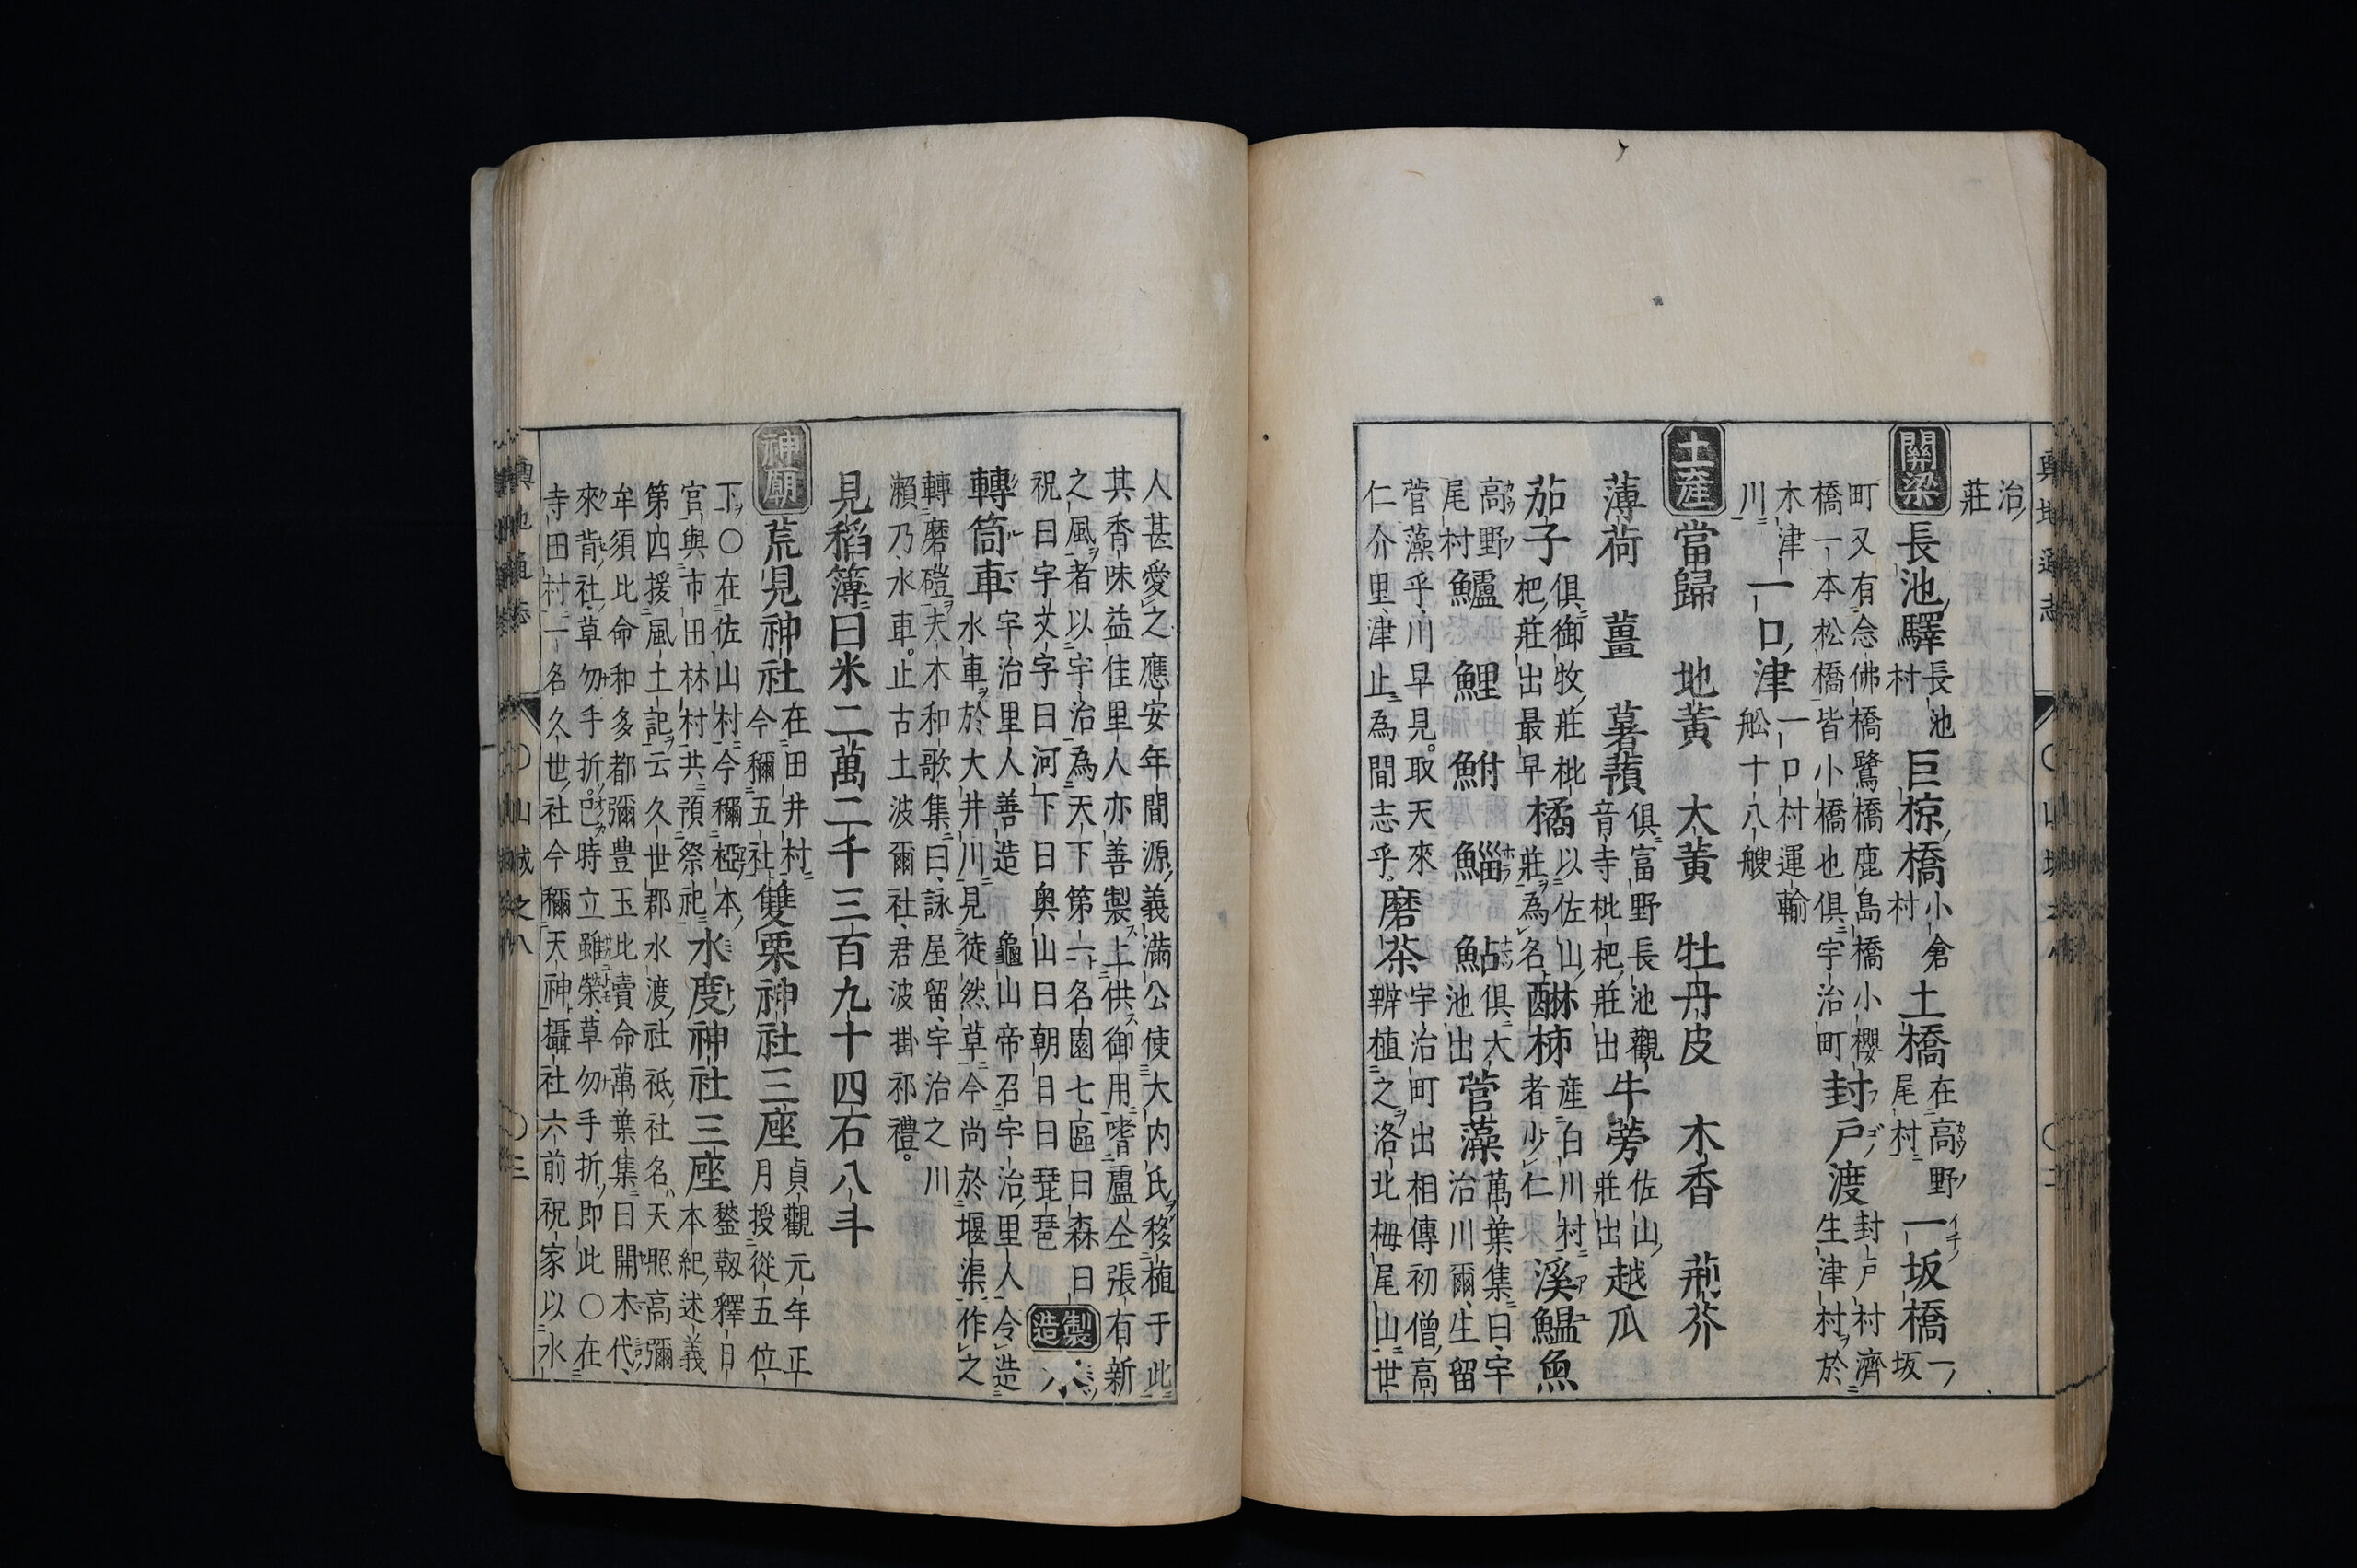 治
莊
關梁 長池驛 長池
村 巨椋橋 小倉
村 土橋 在高野
尾村 一坂橋 一
坂
町又有念佛橋鷺橋鹿島橋小櫻
橋一本松橋皆小橋也俱宇治町 封戸渡 封戸村濟
生津村於
木津
川 一口津 一口村運輸
舩十八艘
土産 當歸 地黃 大黃 牡丹皮 木香 荊芥
薄荷 薑 薯蕷 俱富野長池觀
音寺枇杷莊出 牛蒡 佐山
莊出 越瓜
茄子 俱御牧莊枇
杷莊出最早 橘 以佐山
莊為名 醂柿 産白川村
者少仁 溪鰮魚
高野
尾村 鱸 鯉 鮒 鯔 鮎 俱大
池出 菅藻 萬葉集曰宇
治川爾生留
菅藻乎川早見取天來
仁介里津止為閒志乎 磨茶 宇治町出相傳初僧高
辨植之洛北栂尾山世
人甚愛之應安年間源義滿公使大内氏移植于此
其香味益佳里人亦善製上供御用嗜盧仝張有新
之風者以宇治為天下第一名園七區曰森曰
祝曰宇文字曰河下曰奥山曰朝日曰琵琶 製造 水
轉筒車 宇治里人善造 龜山帝召宇治里人令造
水車於大井川見徒然草今尚於堰渠作之
轉磨磑夫木和歌集曰詠屋留宇治之川
瀨乃水車止古土波爾社君波掛祁禮
見稻簿曰米二萬二千三百九十四石八斗
神廟 荒見神社 在田井村
今稱五社 雙栗神社三座 貞觀元年正
月授從五位
下〇在佐山村今稱椏本
官與市田林村共預祭祀 水度神社三座 鏊靱釋日
本紀述義
第四援風土記云久世郡水渡社祗社名天照高彌
牟須比命和多都彌豊玉比賣命萬葉集曰開木代
來背社草勿手折巳時立雖榮草勿手折即此〇在
寺田村一名久世社今稱天神攝社六前祝家以水
輿地通志 〇山城之八 〇三